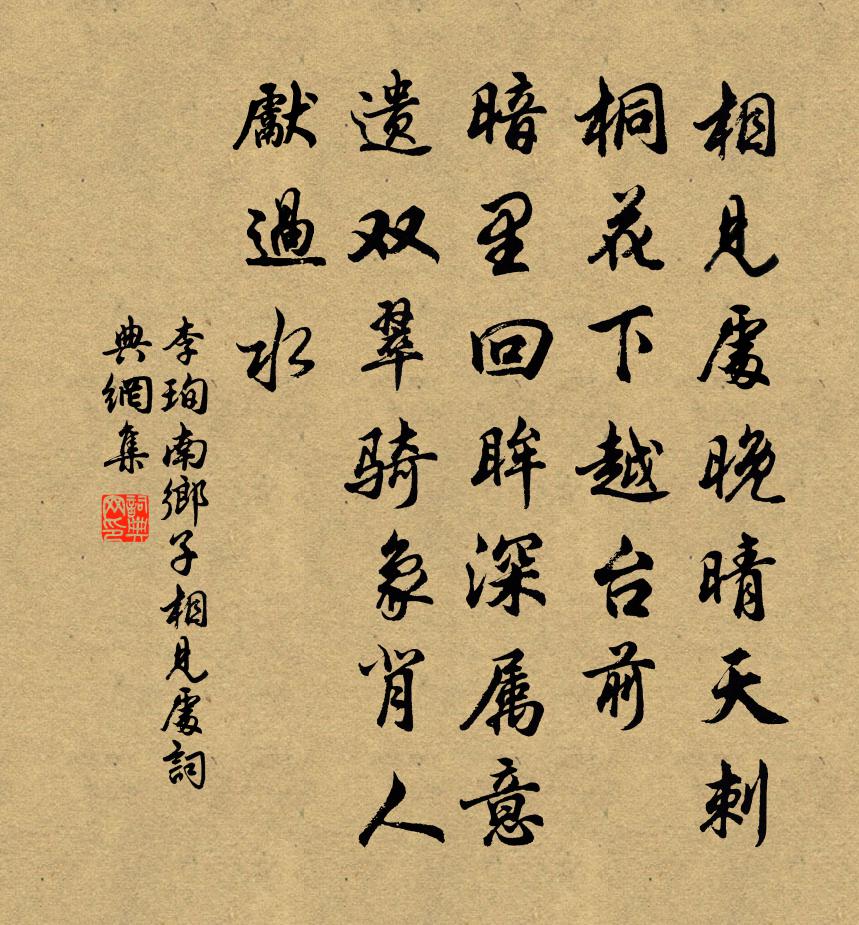 相見處晚晴天刺
桐花下越台前
暗里回眸深属意
遗双翠骑象背人
獻過水
李珣南鄉子相見處詞
典網集
詞典网印